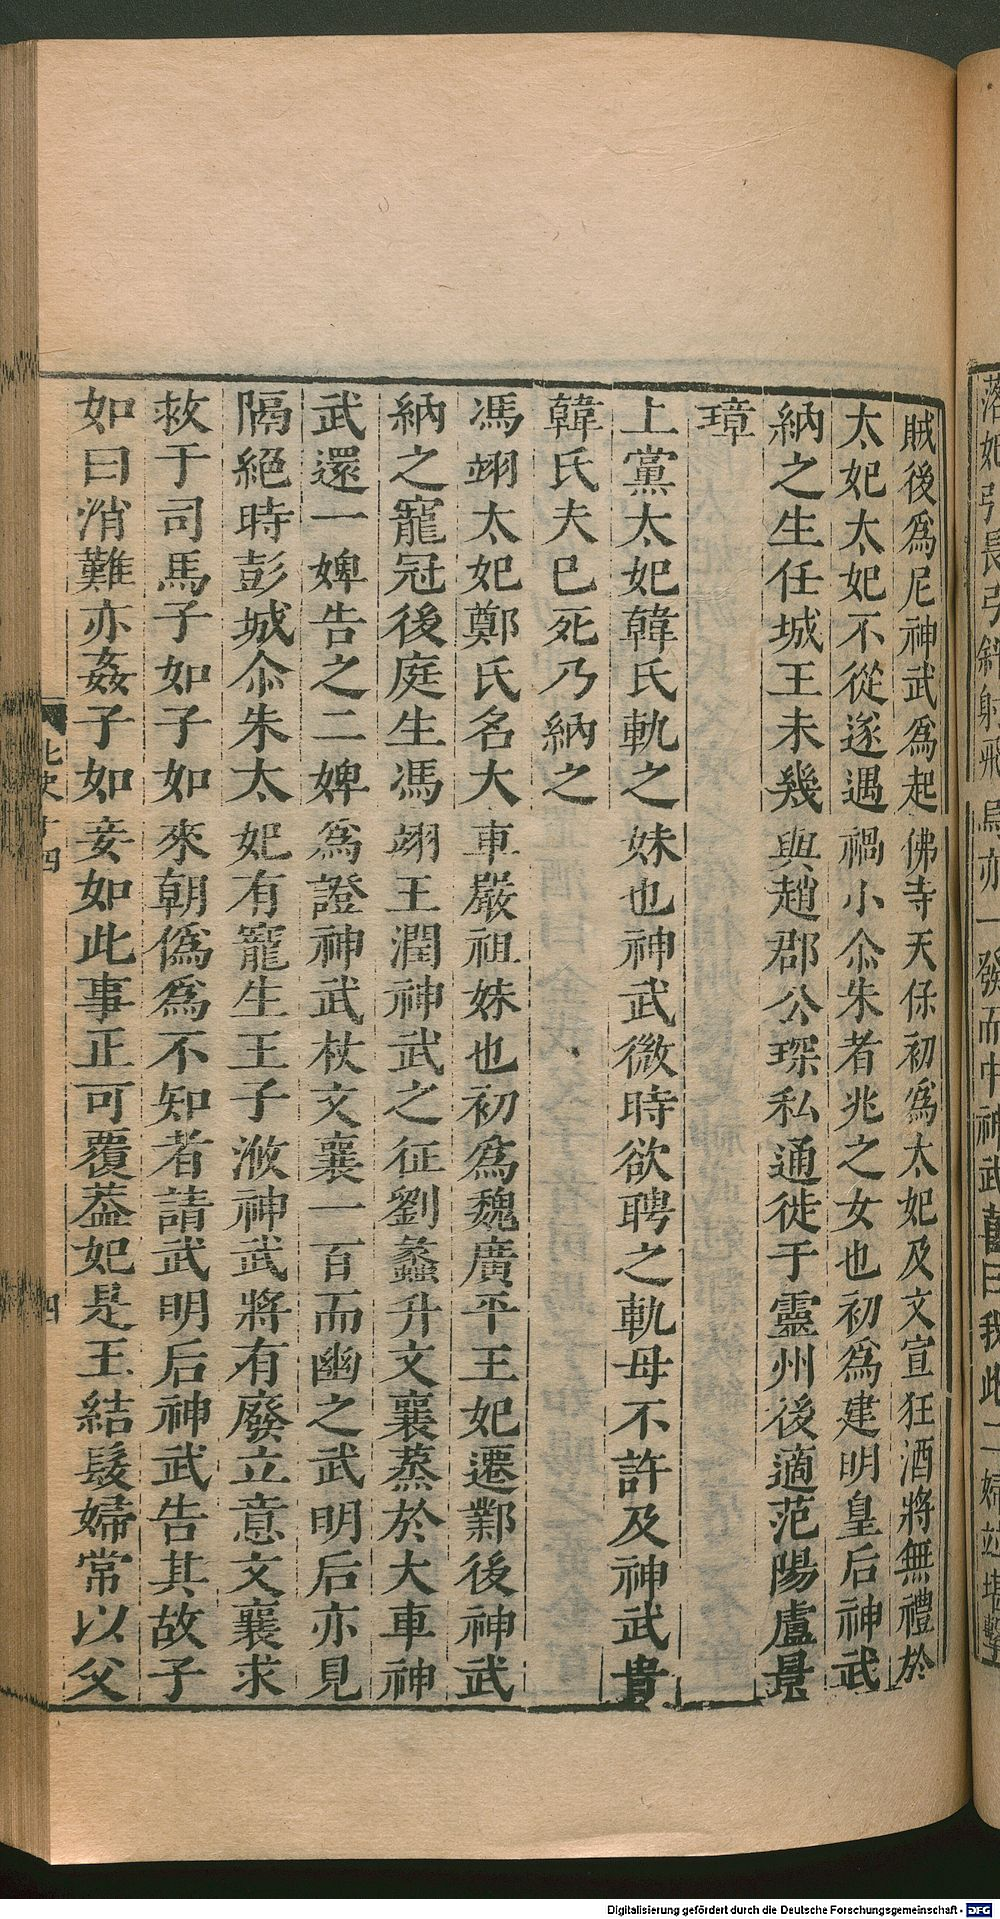 落妃引長弓斜射飛烏亦一發而中神武喜曰我此二婦並堪擊
賊後爲尼神武爲起佛寺天保初爲太妃及文宣狂酒將無禮於
太妃太妃不從遂遇禍小尒朱者兆之女也初爲建明皇后神武
納之生任城王未幾與趙郡公琛私通徙于靈州後適范陽盧景
璋
上黨太妃韓氏軌之妹也神武微時欲聘之軌母不許及神武貴
韓氏夫已死乃納之
馮翊太妃鄭氏名大車嚴祖妹也初爲魏廣平王妃遷鄴後神武
納之寵冠後庭生馮翊王潤神武之征劉蠡升文襄蒸於大車神
武還一婢告之二婢爲證神武杖文襄一百而幽之武明后亦見
隔絕時彭城尒朱太妃有寵生王子浟神武將有廢立意文襄求
救于司馬子如子如來朝僞爲不知者請武明后神武告其故子
如曰消難亦姦子如妾如此事正可覆蓋妃是王結髮婦常以父
北史十四
四
Digitalisierung gefördert durch die Deutsche Forschungsgemeinschaft - DFG